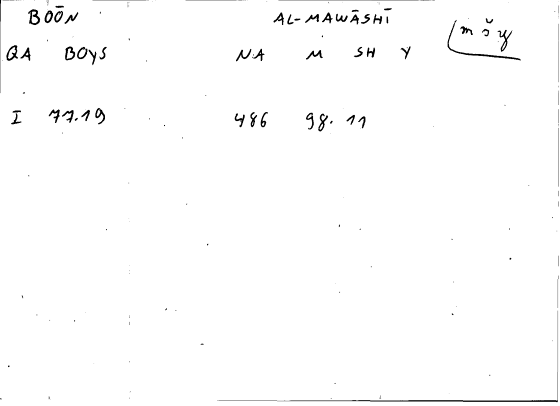 BOŌN AL-MAWĀSHĪ mšy
QA BOYS NA M SH Y
I 77.19 486 98. 11